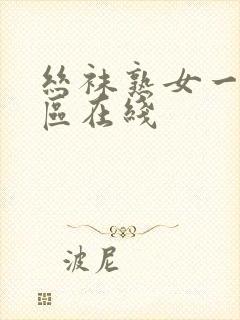 丝袜熟女一
区在线
波尼